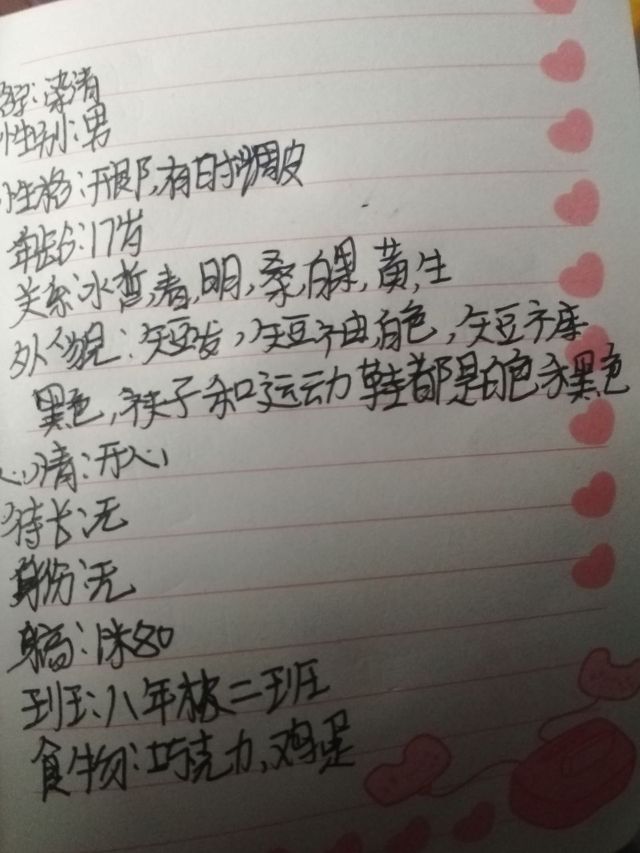 字:染清
性别:男
性格:开郎,有时调皮
年龄:17岁
关系:冰哲,春,明,桑,白果,黄,生
外貌:短发,短衣由白色,短衣库
黑色,袜子和运动鞋都是白色和黑色
心情:开心
特长:无
身份:无
身高:1米80
班:八年级二班
食物:巧克力,鸡蛋